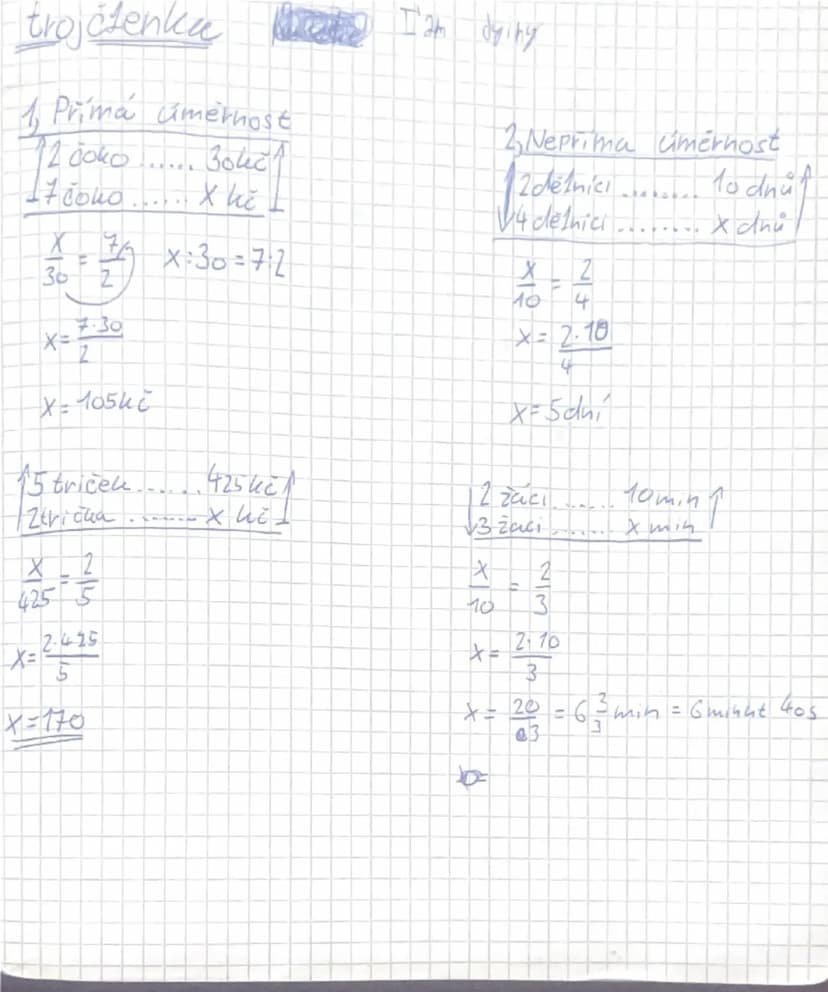 trojčlenka
1, Přímá úměrnost
2 čoko ...... 30kč
7 čoko ...... x kč
x/30 = 7/2 x:30=7:2
x= 7·30/2
x= 105kč
5 triček ...... 425kč
2 trička ....... x kč
x/425 = 2/5
x= 2·425/5
x=170
2, Nepříma úměrnost
2 dělníci ........ 10 dnů
4 dělníci ........ x dnů
x/10 = 2/4
x= 2·10/4
x= 5 dní
2 žáci ...... 10 min
3 žáci ...... x min
x/10 = 2/3
x= 2·10/3
x= 20/3 = 6 2/3 min = 6 minut 40s